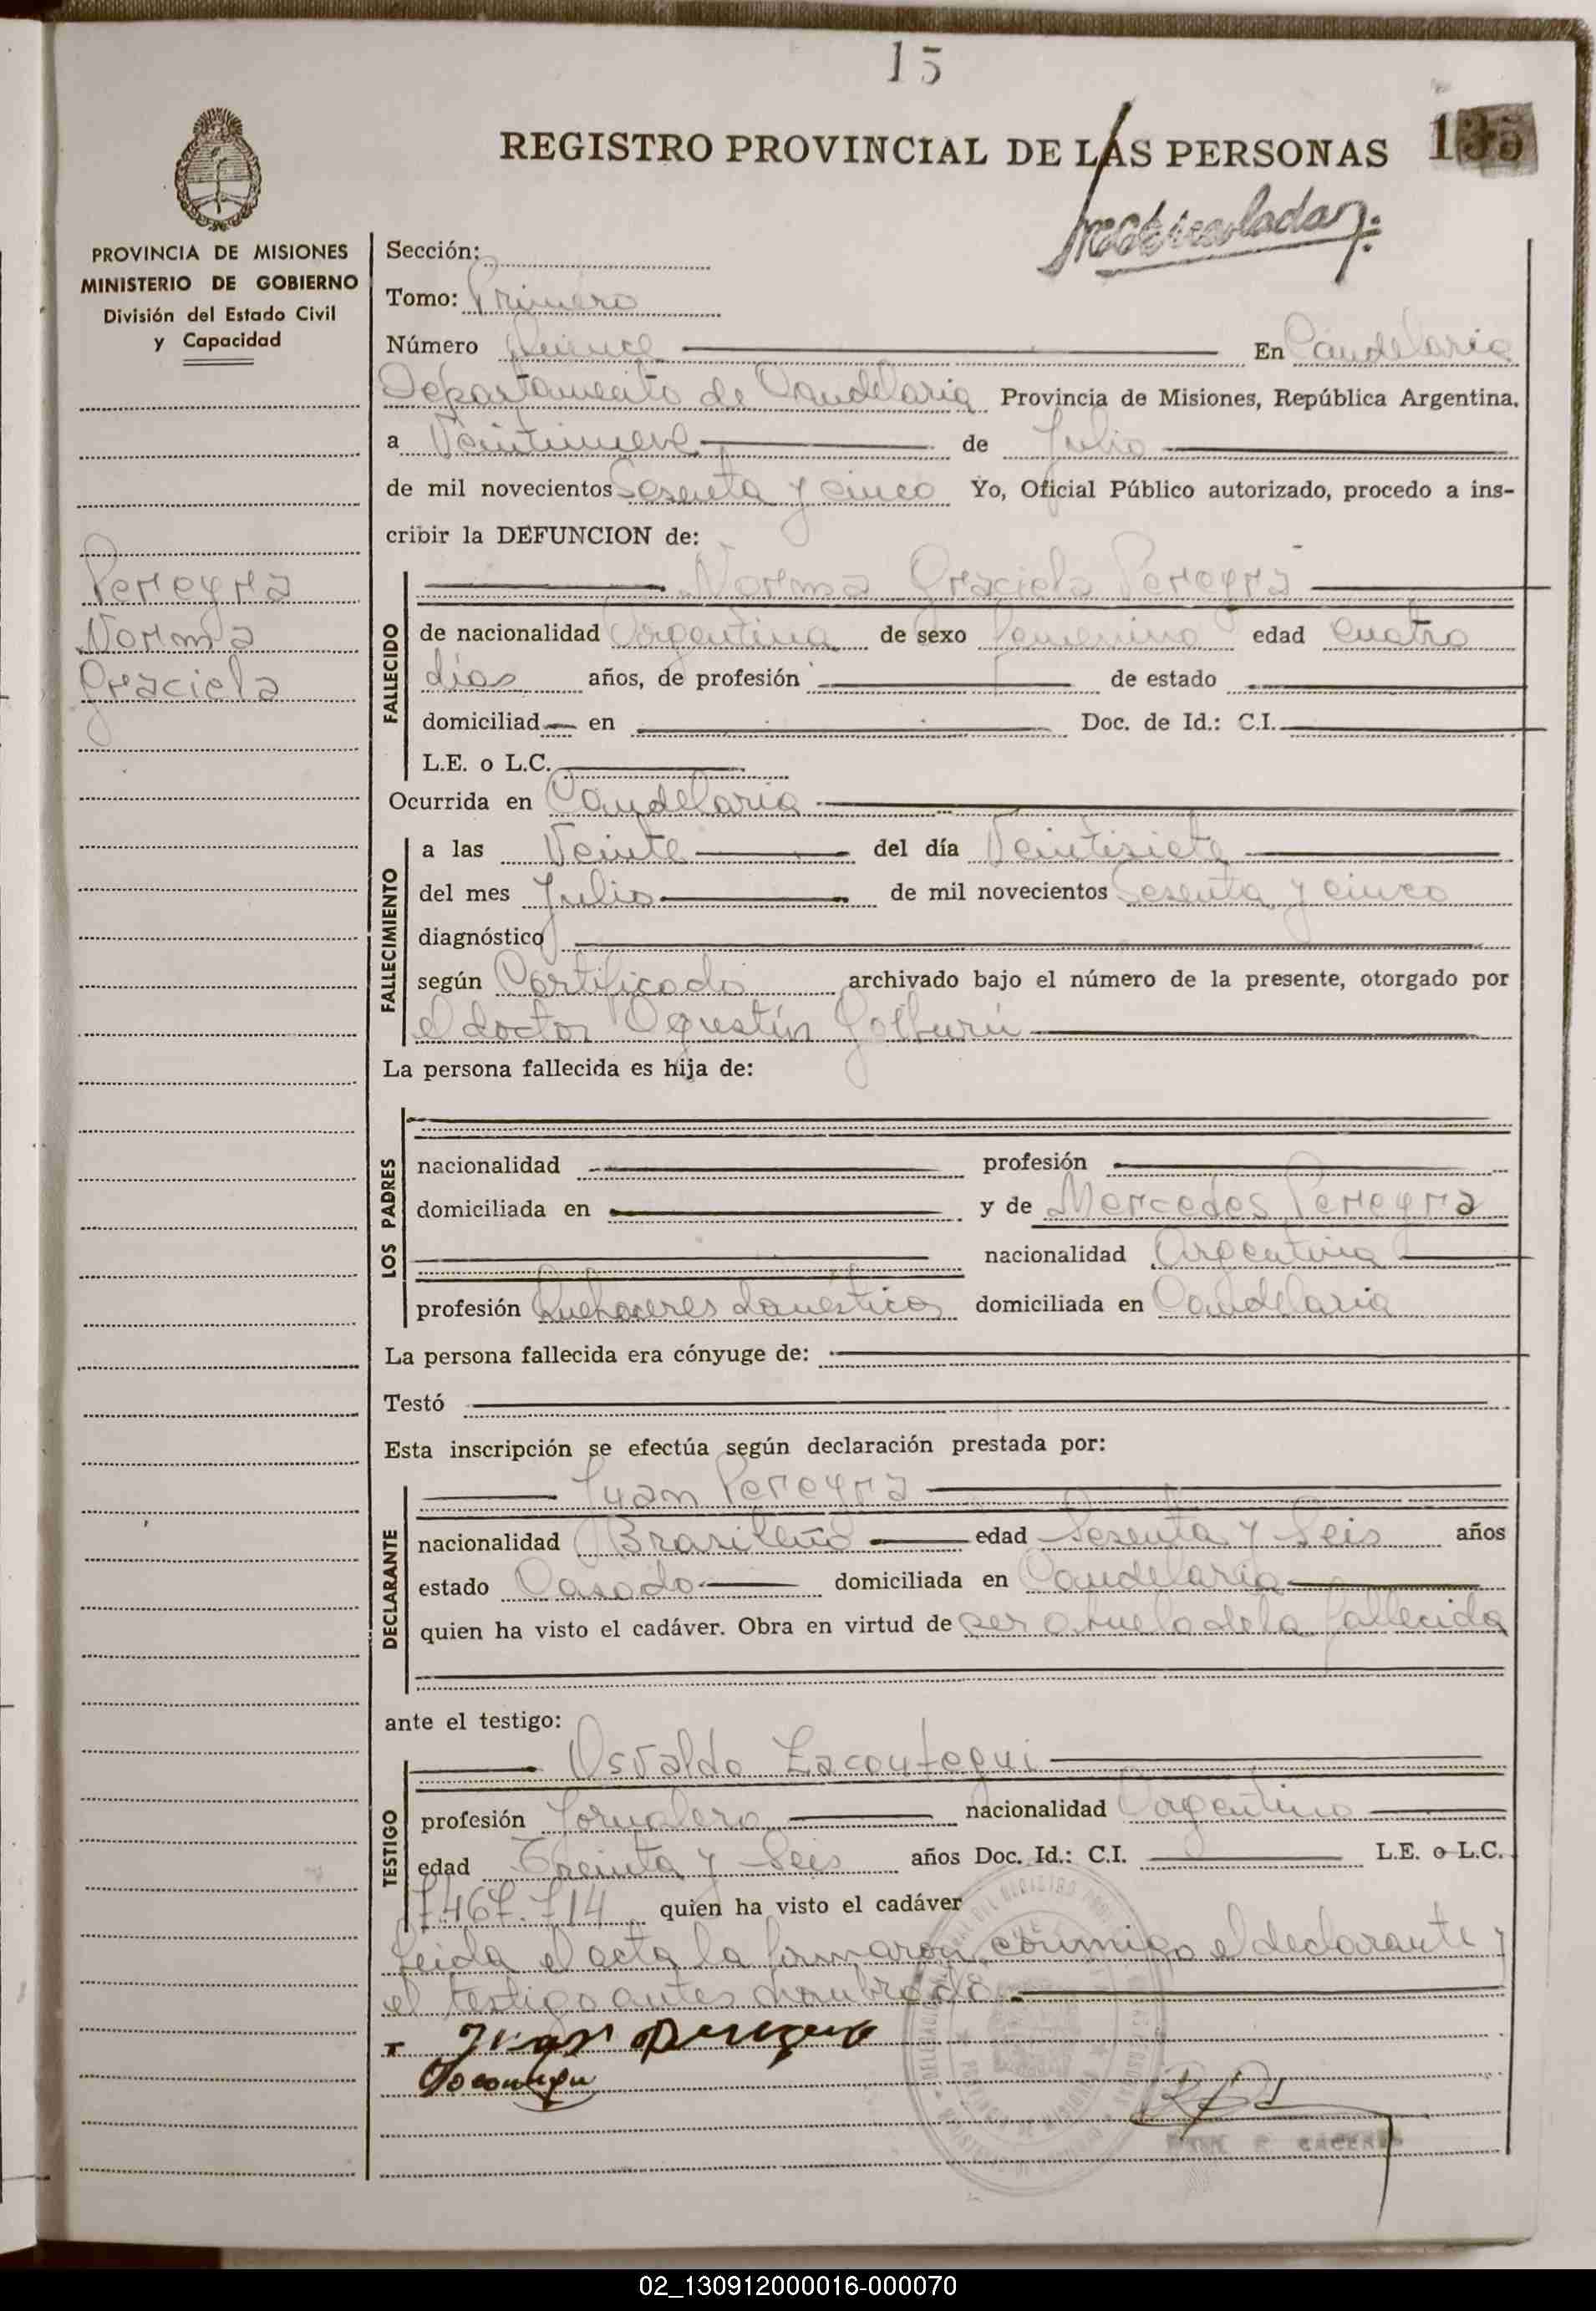 15
REGISTRO PROVINCIAL DE LAS PERSONAS 135
PROVINCIA DE MISIONES
MINISTERIO DE GOBIERNO
División del Estado Civil
y Capacidad
Pereyra
Norma
Graciela
Sección:
Tomo: Primero
Número Quince En Candelaria
Departamento de Candelaria Provincia de Misiones, República Argentina,
a Veintinueve de Julio
de mil novecientos Sesenta y cinco Yo, Oficial Público autorizado, procedo a ins-
cribir la DEFUNCION de:
Norma Graciela Pereyra
FALLECIDO
de nacionalidad Argentina de sexo femenino edad cuatro
días años, de profesión de estado
domiciliad en Doc. de Id.: C.I.
L.E. o L.C.
Ocurrida en Candelaria
FALLECIMIENTO
a las Veinte del día Veintisiete
del mes Julio de mil novecientos Sesenta y cinco
diagnóstico
según Certificado archivado bajo el número de la presente, otorgado por
el doctor Agustín
La persona fallecida es hija de:
LOS PADRES
nacionalidad profesión
domiciliada en y de Mercedes Pereyra
nacionalidad Argentina
profesión Quehaceres domésticos domiciliada en Candelaria
La persona fallecida era cónyuge de:
Testó
Esta inscripción se efectúa según declaración prestada por:
Juan Pereyra
DECLARANTE
nacionalidad Brasileño edad Sesenta y Seis años
estado Casado domiciliada en Candelaria
quien ha visto el cadáver. Obra en virtud de ser abuelo de la fallecida
ante el testigo:
Osvaldo Lacoutegui
TESTIGO
profesión Jornalero nacionalidad Argentino
edad Treinta y Seis años Doc. Id.: C.I. L.E. o L.C.
7.467.714 quien ha visto el cadáver
Leida el acta la firmaron conmigo el declarante y
el testigo antes nombrado.
Juan Pereyra
CACERES
02_130912000016-000070